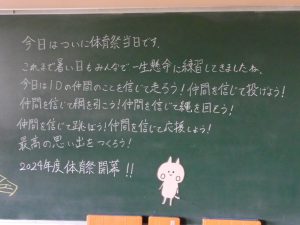 今日はついに体育祭当日です。
これまで暑い日もみんなで一生懸命に練習してきましたね。
今日は10の仲間のことを信じて走ろう!仲間を信じて投げよう!
仲間を信じて綱を引こう!仲間を信じて縄を回そう!
仲間を信じて跳ぼう!仲間を信じて応援しよう!
最高の思い出をつくろう!
2024年度体育祭開幕!!